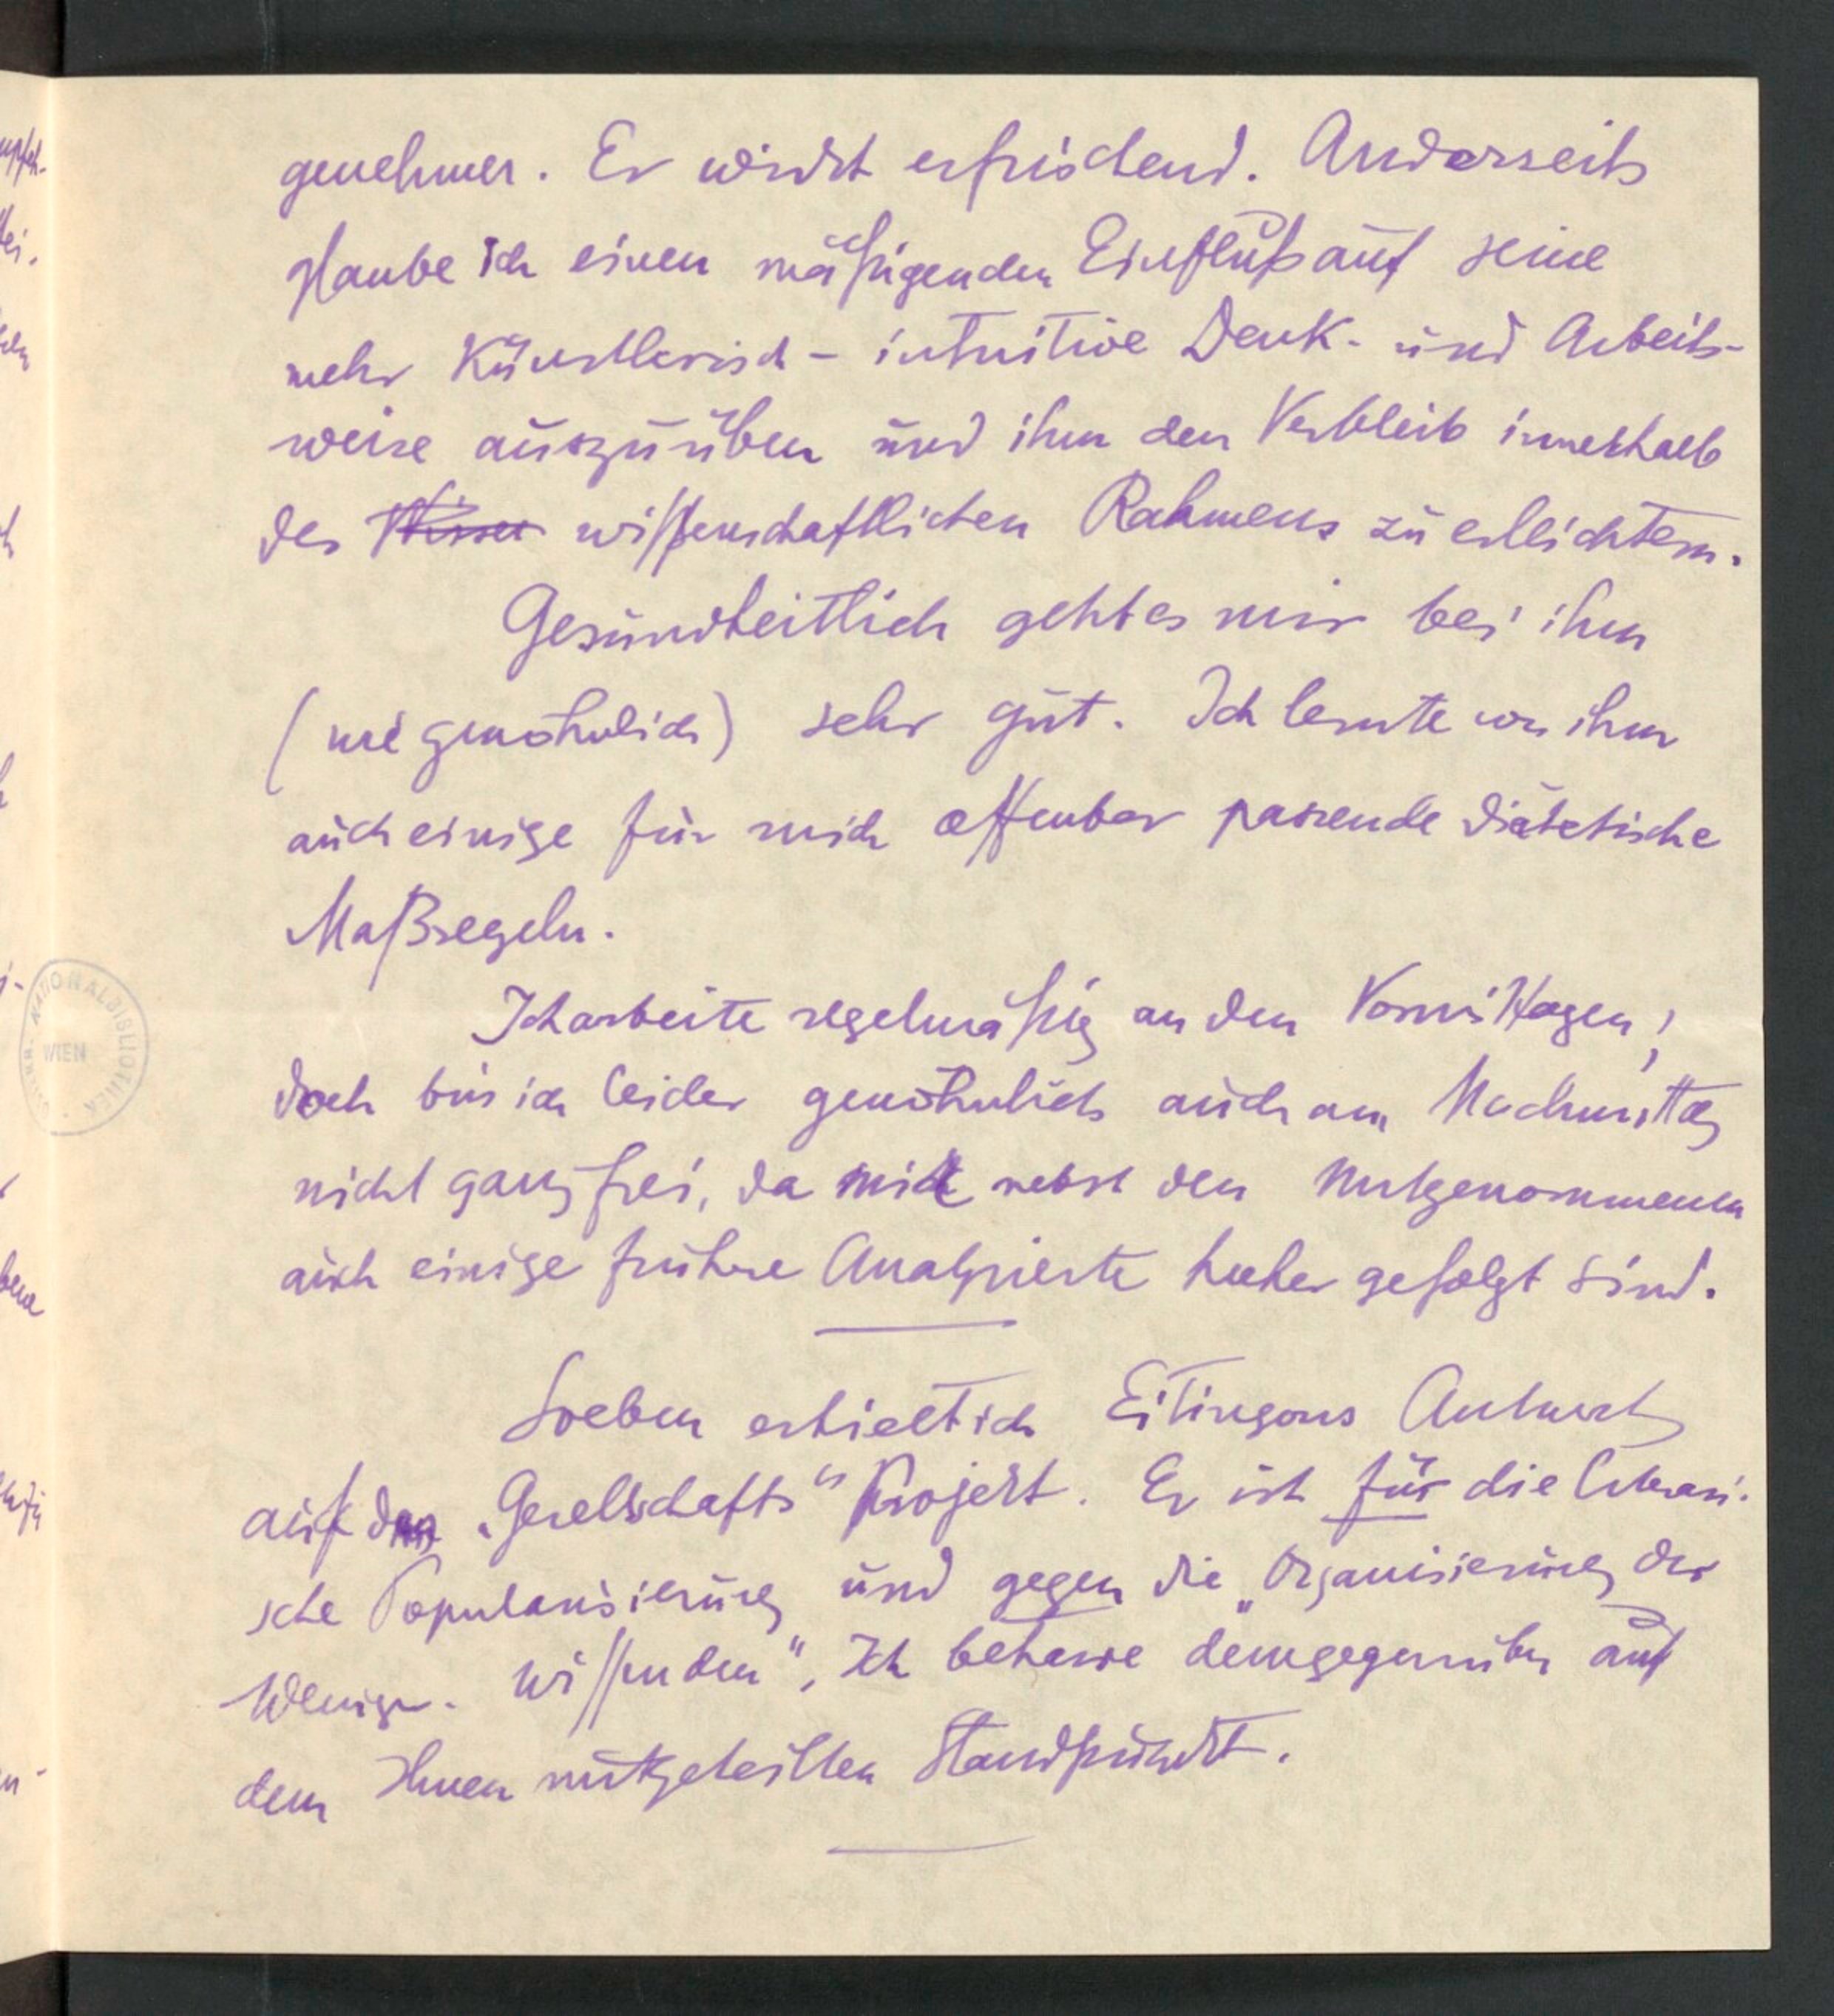 genehmer. Er wirkt erfrischend. Anderseits
glaube ich einen mäßigenden Einfluß auf seine
mehr künstlerisch-intuitive Denk- und Arbeits-
weise auszuüben und ihm den Verbleib innerhalb
des Wisser wissenschaftlichen Rahmens zu erleichtern.
Gesundheitlich geht es mir bei ihm
(wie gewöhnlich) sehr gut. Ich lernte von ihm
auch einige für mich offenbar passende diätetische
Maßregeln.
Ich arbeite regelmäßig an den Vormittagen;
doch bin ich leider gewöhnlich auch am Nachmittag
nicht ganz frei, da mir nebst den Mitgenommenen
auch einige frühere Analysierte hieher gefolgt sind.
Soeben erhielt ich Eitingons Antwort
auf das „Gesellschafts“ Projekt. Er ist für die litterari-
sche Popularisierung und gegen die „Organisierung der
Weniger-wissenden“. Ich beharre demgegenüber auf
dem Ihnen mitgeteilten Standpunkt.
NATIONALBIBLIOTHEK
WIEN